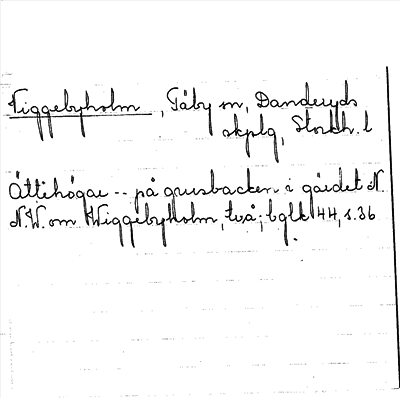 Viggebyholm, Täby sn, Danderyds
skplg, Stockh. l
Ättehögar -- på grusbacken i gärdet N.
N.W. om Wiggebyholm, två; bglk 44, s. 36.